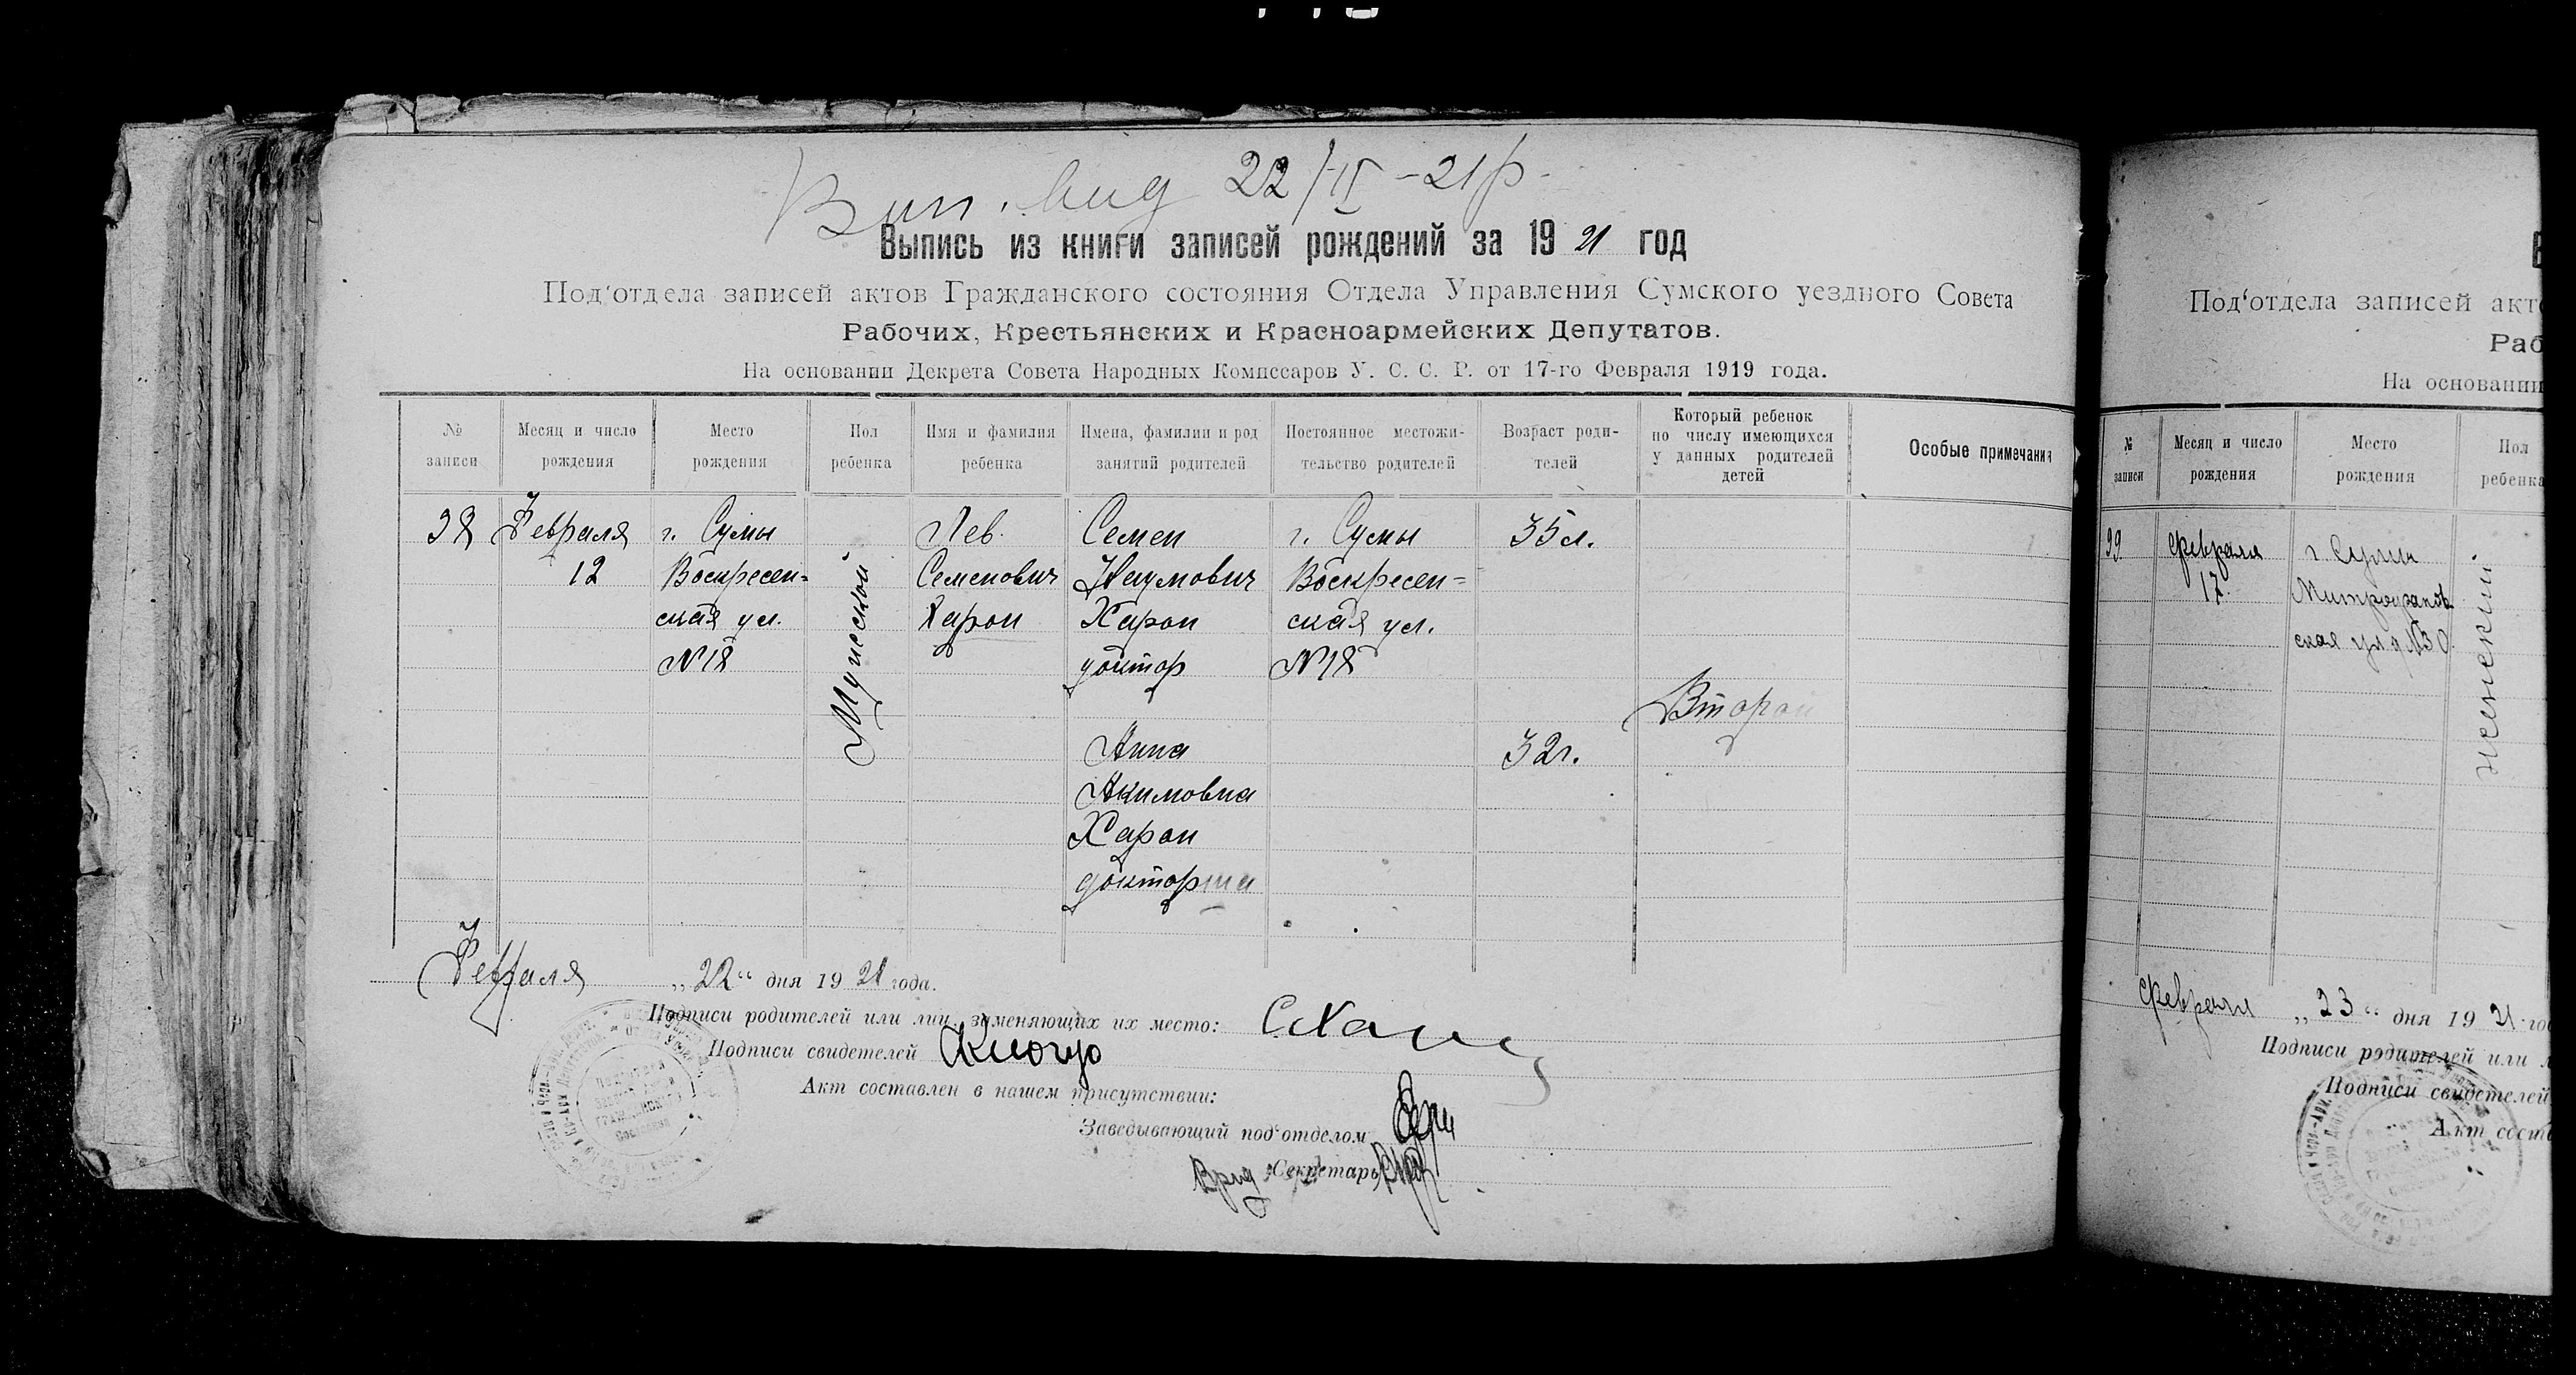 Вип. вид 22/II-21р.
Выпись из книги записей рождений за 1921 год
Под‘отдела записей актов Гражданского состояния Отдела Управления Сумского уездного Совета
Рабочих, Крестьянских и Красноармейских Депутатов.
На основании Декрета Совета Народных Комиссаров У. С. С. Р. от 17-го Февраля 1919 года.
№ записи
Месяц и число рождения
Место рождения
Пол ребенка
Имя и фамилия ребенка
Имена, фамилии и род занятий родителей
Постоянное местожи-тельство родителей
Возраст роди-телей
Который ребенок по числу имеющихся у данных родителей детей
Особые примечания
98
Февраля
12
г. Сумы
Воскресен=
ская ул.
№18
Мужеской
Лев
Семенович
Харон
Семен
Наумович
Харон
доктор
Анна
Акимовна
Харон
докторша
г. Сумы
Воскресен=
ская ул.
№18
35 л.
32 г.
Второй
Февраля „22“ дня 1921 года.
Подписи родителей или лиц, заменяющих их место:
Подписи свидетелей
Акт составлен в нашем присутствии:
Заведывающий под‘отделом
Врид Секретарь
Под‘отдела записей акт
Раб
На основании
№ записи
Месяц и число рождения
Место рождения
Пол ребенка
99
Февраля
17.
г. Сумы
Митрофанов
ская ул д №30.
женский
Февраля „23“ дня 1921 го
Подписи родителей или
Подписи свидетелей
Акт сост